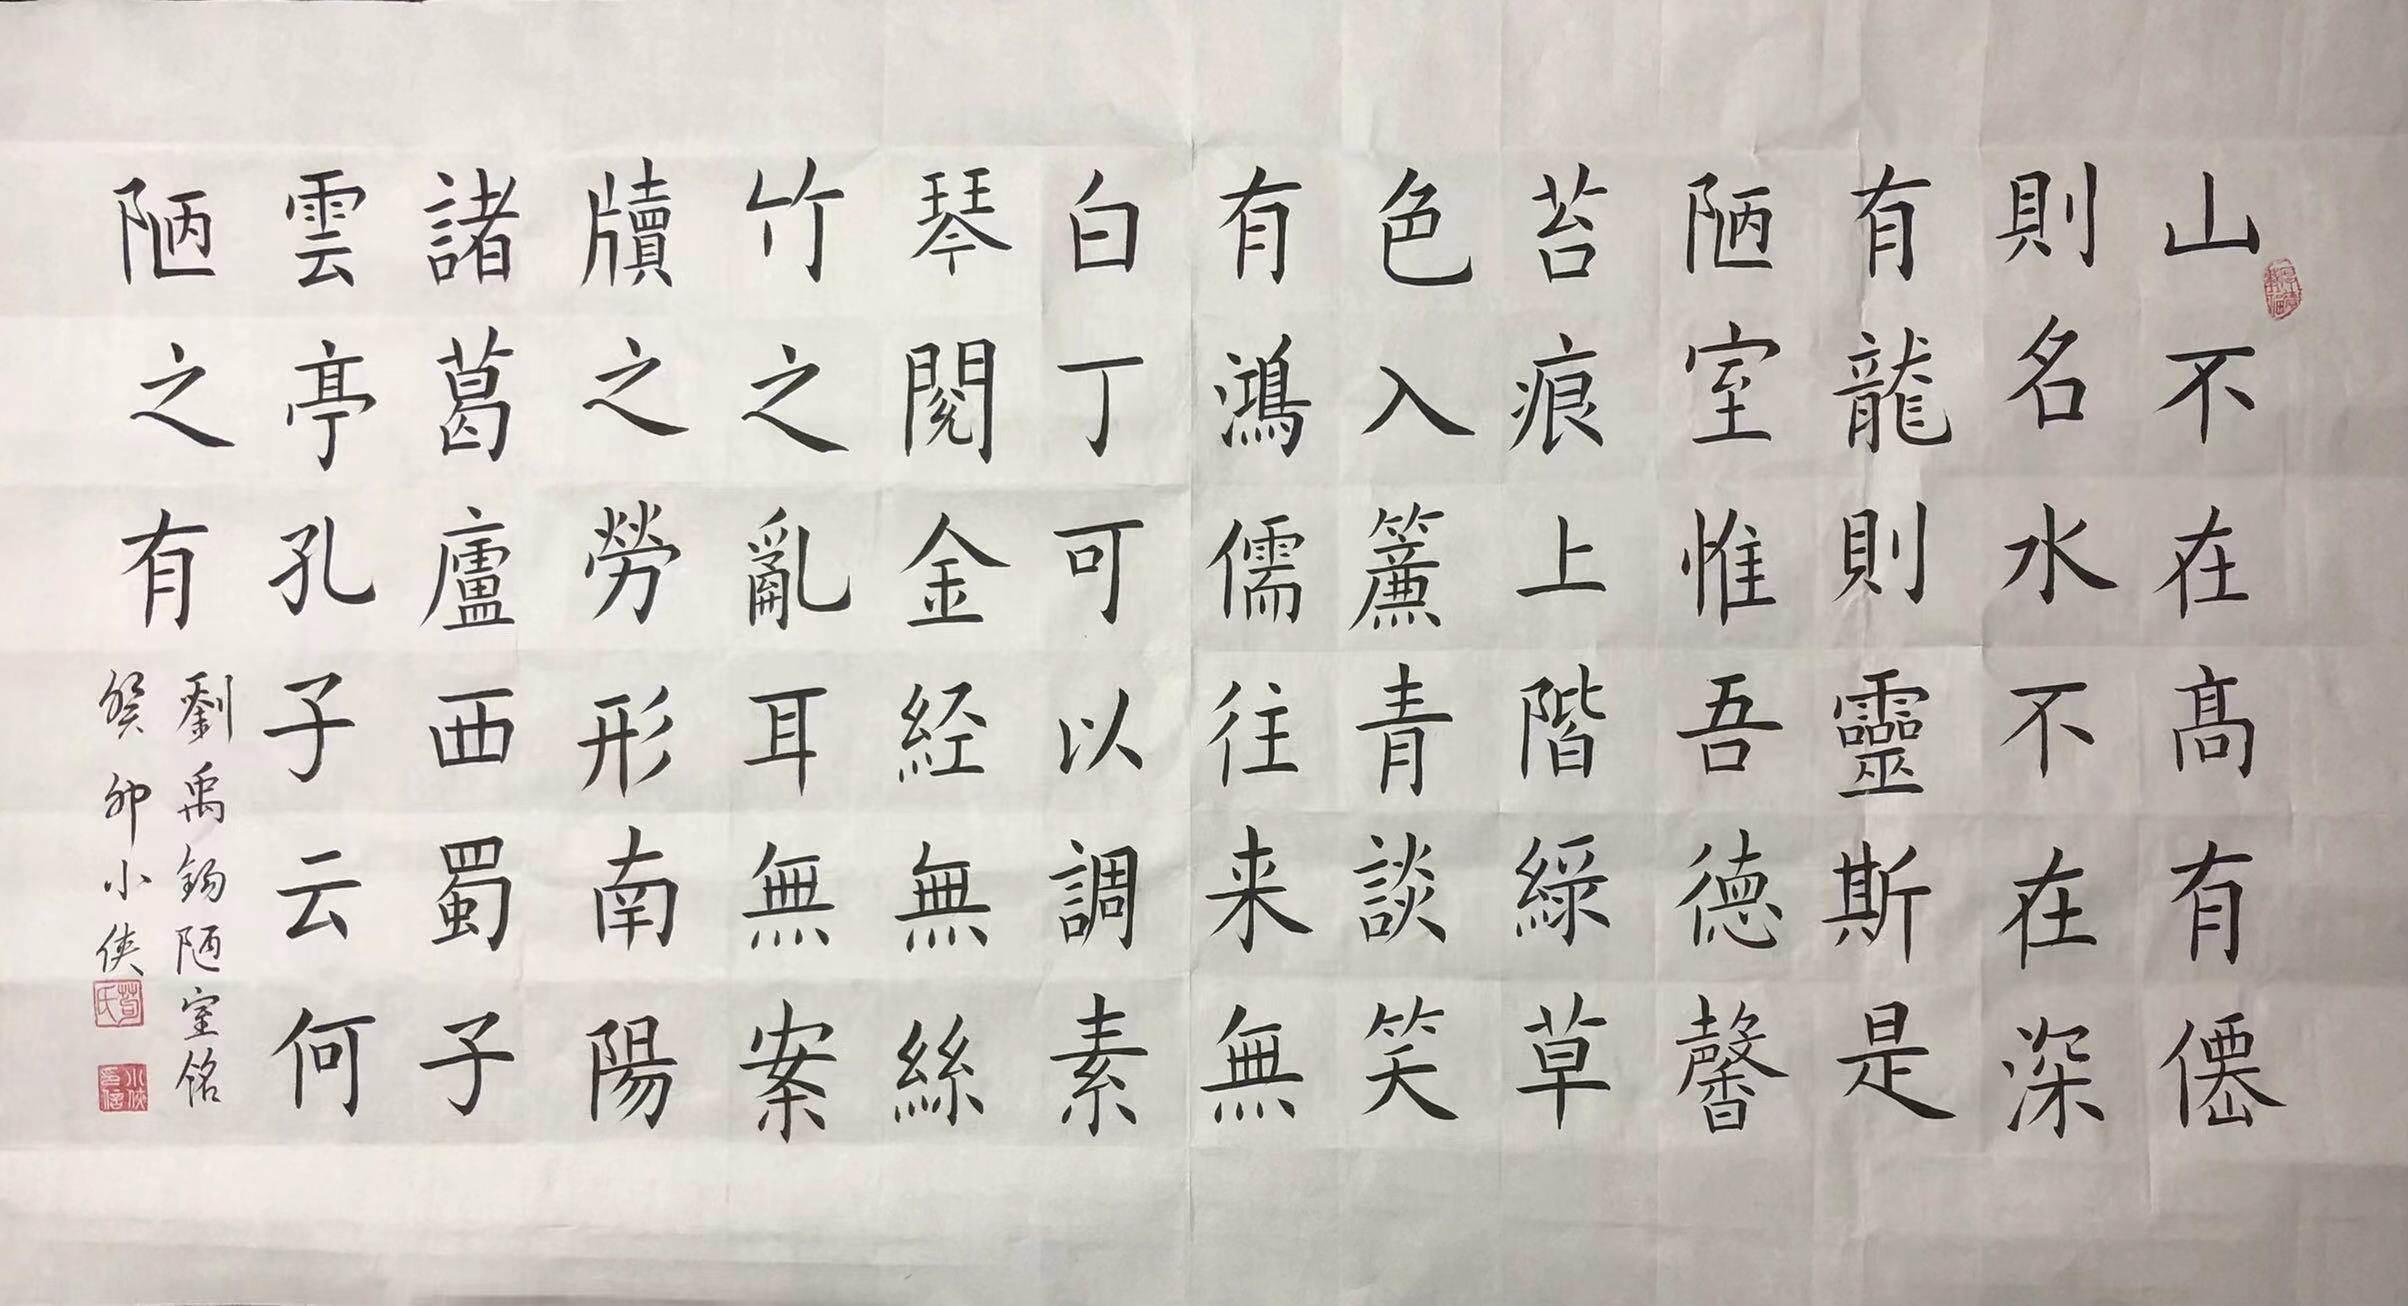 山不在高有僊
則名水不在深
有龍則靈斯是
陋室惟吾德馨
苔痕上階綠草
色入簾青談笑
有鴻儒往来無
白丁可以調素
琴閱金経無絲
竹之亂耳無案
牘之勞形南陽
諸葛廬西蜀子
雲亭孔子云何
陋之有
劉禹錫陋室銘
癸卯小俠
荀氏
小俠印信